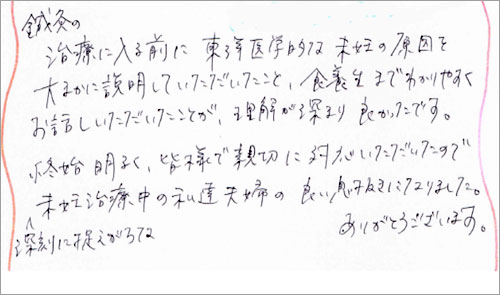 鍼灸の
治療に入る前に 東洋医学的な 未妊の原因を
大まかに説明していただいたこと、食養生までわかりやすく
お話しいただいたことが、理解が深まり 良かったです。
終始 明るく、皆様で親切に対応いただいたので
未妊治療中の私達夫婦の 良い息抜きになりました。
深刻に捉えがちな
ありがとうございます。